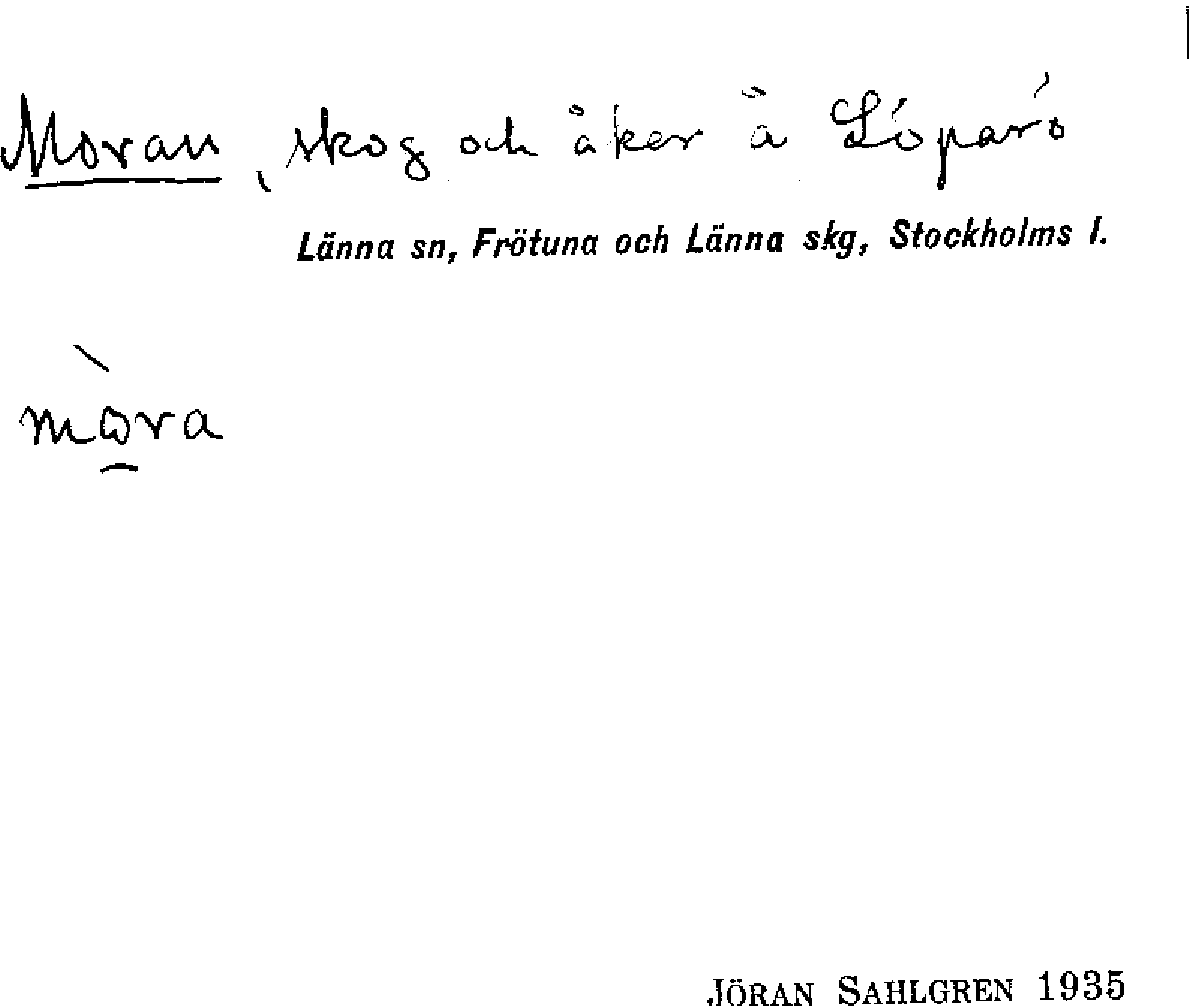 Moran, skog och åker å Löparö
Länna sn, Frötuna och Länna skg, Stockholms l.
mɷ̀ra
JÖRAN SAHLGREN 1935